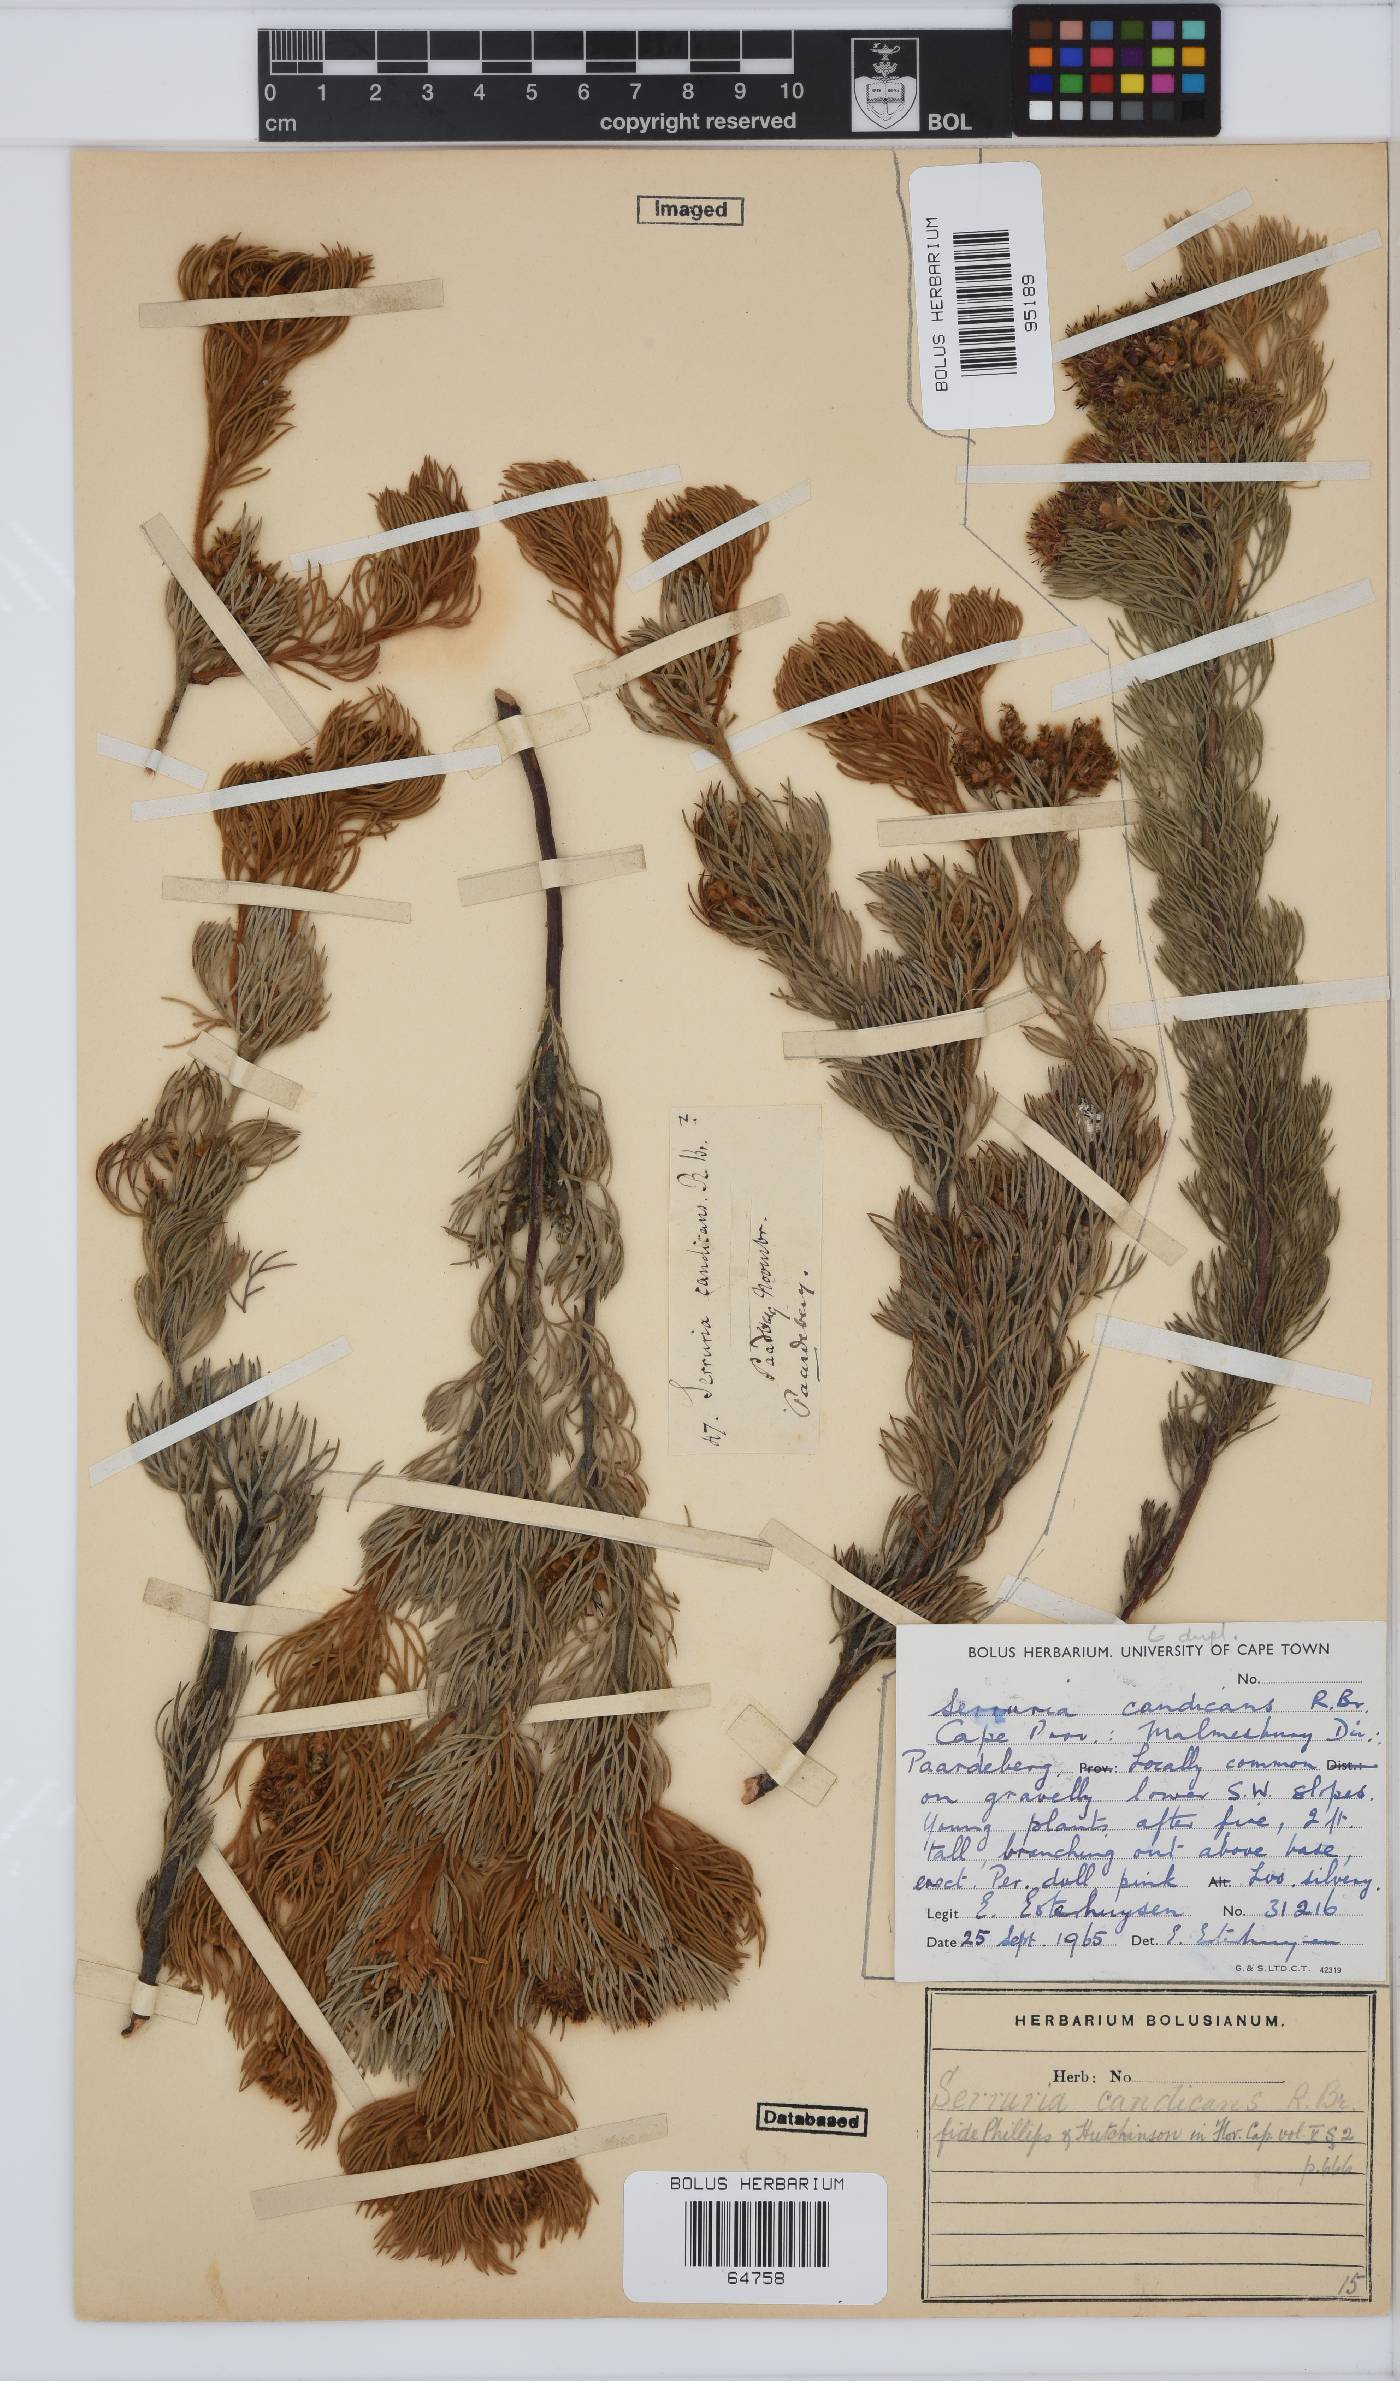 0 1 2 3 4 5 6 7 8 9 10
cm copyright reserved BOL
Imaged
BOLUS HERBARIUM
95189
47. Serruria candicans. R Br. ?
Novmbr.
Paardeberg.
6 dupl.
BOLUS HERBARIUM. UNIVERSITY OF CAPE TOWN
No.
Serruria candicans R.Br.
Cape Prov.: Malmesbury Div.:
Paardeberg, Prov.: Locally common Distr.
on gravelly lower S.W. slopes.
Young plants after fire, 2 ft.
tall, branching out above base,
erect. Per. dull pink Alt. Lvs. silvery.
Legit E. Esterhuysen No. 31216
Date 25 Sept. 1965 Det. E. Esterhuysen
G. & S. LTD. C.T. 42319
HERBARIUM BOLUSIANUM.
Herb: No
Serruria candicans R. Br.
fide Phillips & Hutchinson in Flor. Cap. vol. V § 2
p. 666
15
Databased
BOLUS HERBARIUM
64758